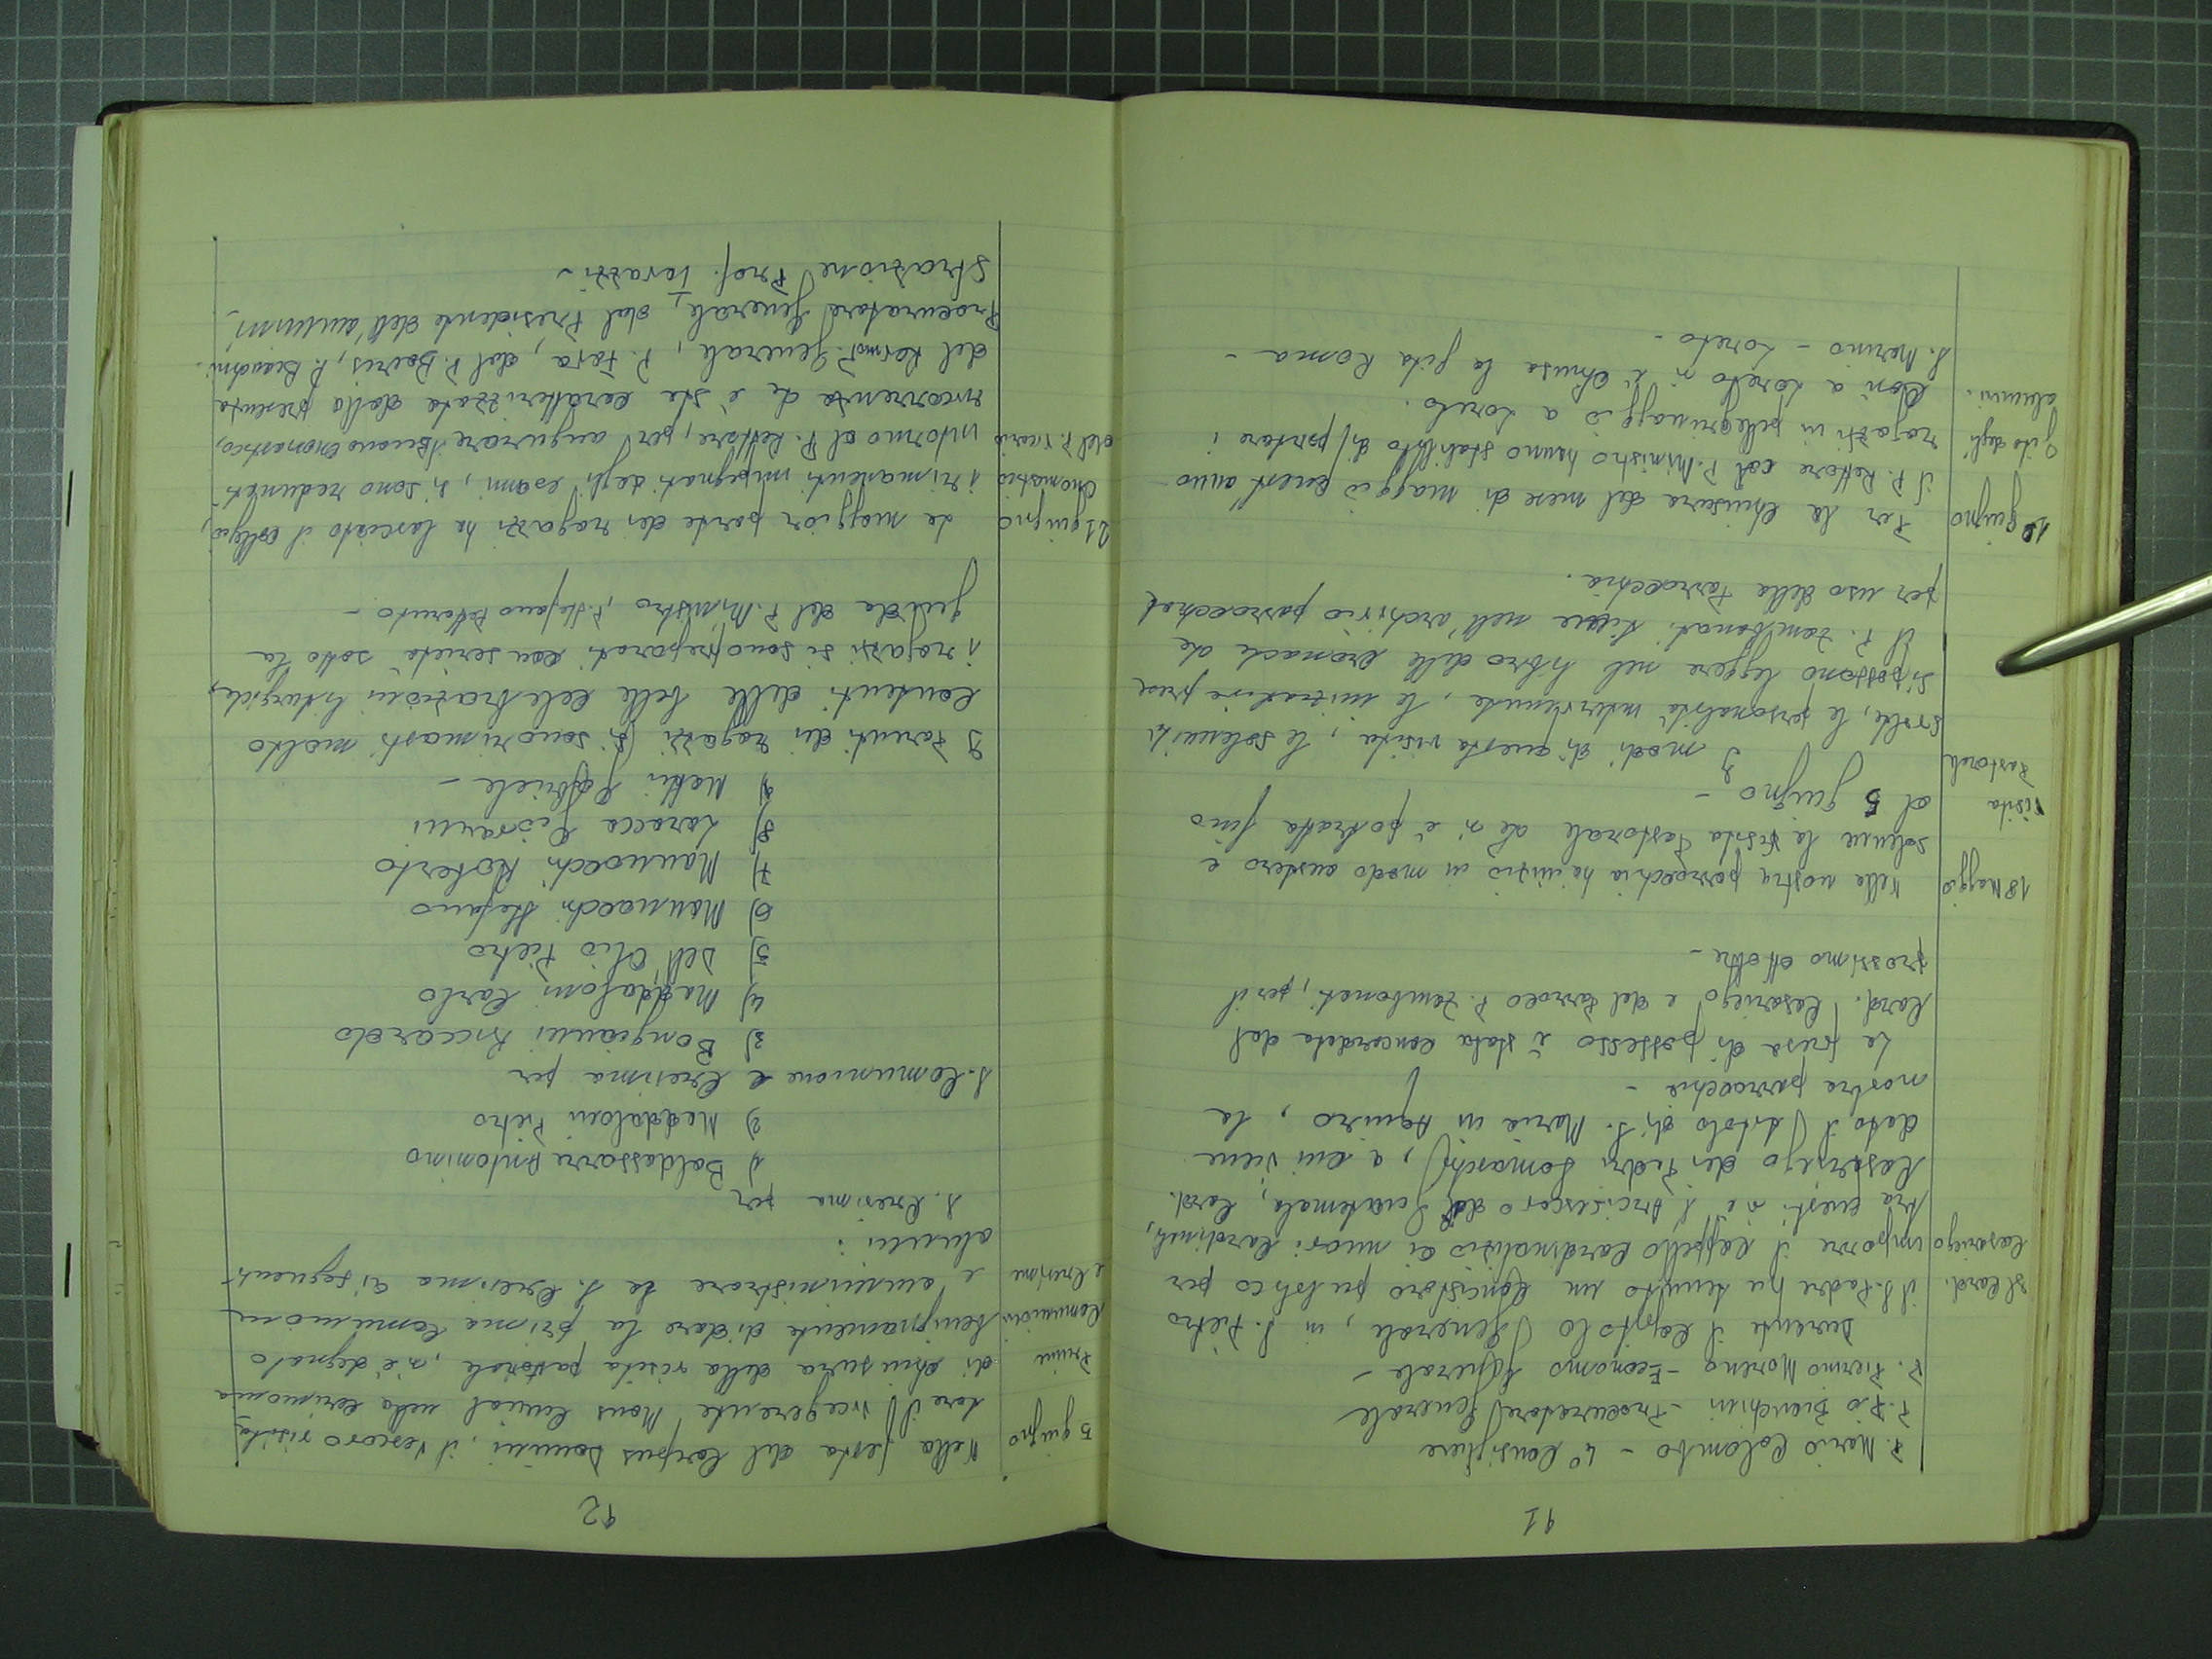 91
P. Mario Colombo - 4° Consigliere
P. Pio Bianchini - Procuratore Generale
P. Piermo Moreno - Economo Generale -
Durante il Capitolo Generale, in S. Pietro
Il Card. il S. Padre ha tenuto un Concistoro pubblico per
Casariego imporre il Cappello Cardinalizio ai nuovi Cardinali,
tra questi v'è l'Arcivescovo del Guatemala, Card.
Casariego dei Padri Somaschi, a cui viene
dato il titolo di S. Maria in Aquiro, la
nostra parrocchia -
La presa di possesso è stata concordata dal
Card. Casariego e dal parroco P. Zambonati, per il
prossimo ottobre -
18 Maggio Nella nostra parrocchia ha inizio in modo austero e
Visita solenne la Visita Pastorale che si è protratta fino
Pastorale al 5 giugno -
I modi di questa visita, le solennità
svolte, le personalità intervenute, le iniziative prese
si possono leggere nel libro delle cronache che
il P. Zambonati tiene nell'archivio parrocchiale
per uso della Parrocchia.
1° giugno Per la chiusura del mese di maggio quest'anno
Gita degli il P. Rettore col P. Ministro hanno stabilito di portare i
alunni. ragazzi in pellegrinaggio a Loreto.
Così a Loreto si è chiusa la gita Roma -
S. Marino - Loreto -
92
5 giugno Nella festa del Corpus Domini, il Vescovo visita
tore il Vicegerente Mons. Cunial nella cerimonia
Prime di chiusura della visita pastorale, si è degnato
Comunioni benignamente di dare la prima Comunione
e Cresime e amministrare la S. Cresima ai seguenti
alunni:
S. Cresima per
1) Baldassarre Antonino
2) Maddaloni Pietro
S. Comunione e Cresima per
3) Bongianni Riccardo
4) Maddaloni Carlo
5) Dell'Olio Pietro
6) Mannocchi Stefano
7) Mannocchi Roberto
8) Larocca Giovanni
9) Mattii Gabriele -
I Parenti dei ragazzi si sono rimasti molto
contenti delle belle celebrazioni liturgiche,
i ragazzi si sono preparati con serietà sotto la
guida del P. Ministro, P. Stefano
21 giugno La maggior parte dei ragazzi ha lasciato il collegio,
Onomastico i rimanenti impegnati degli esami, si sono radunati
del P. intorno al P. Rettore, per augurare buono onomastico,
ricorrenza che è sta caratterizzata dalla presenza
del Rev.mo P. Generale, P. Fava, del P. Boeris, P. Bianchini
Procuratore Generale, dal Presidente dell'ammini-
strazione Prof. Lovazzi -